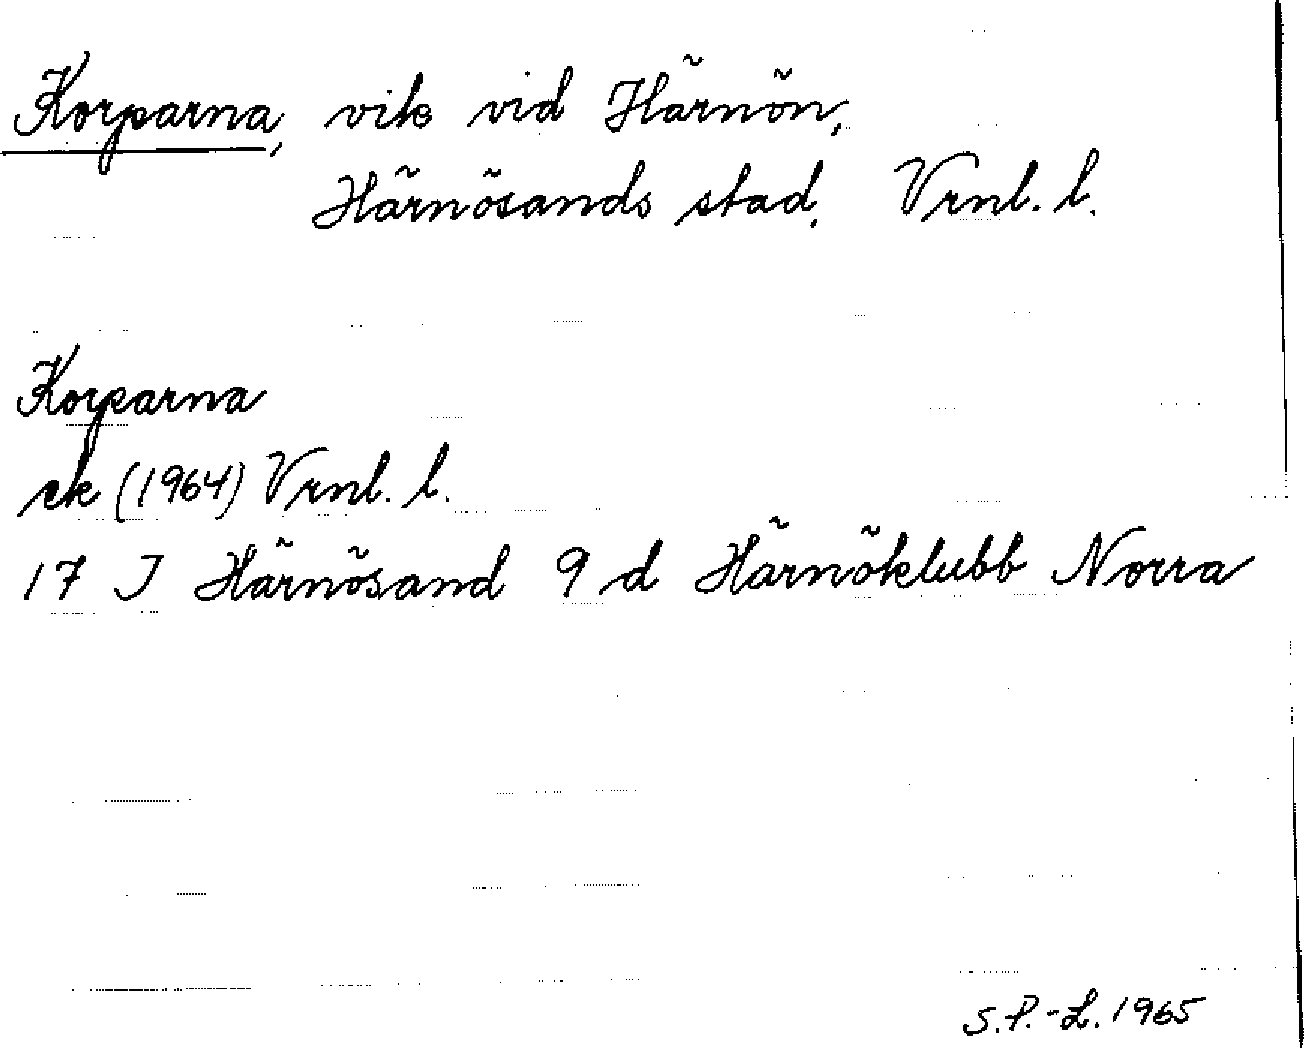 Korparna, vik vid Härnön,
Härnösands stad, Vrnl. l.
Korparna
ek (1964) Vrnl. l.
17 J Härnösand 9 d Härnöklubb Norra
S.P.-L. 1965